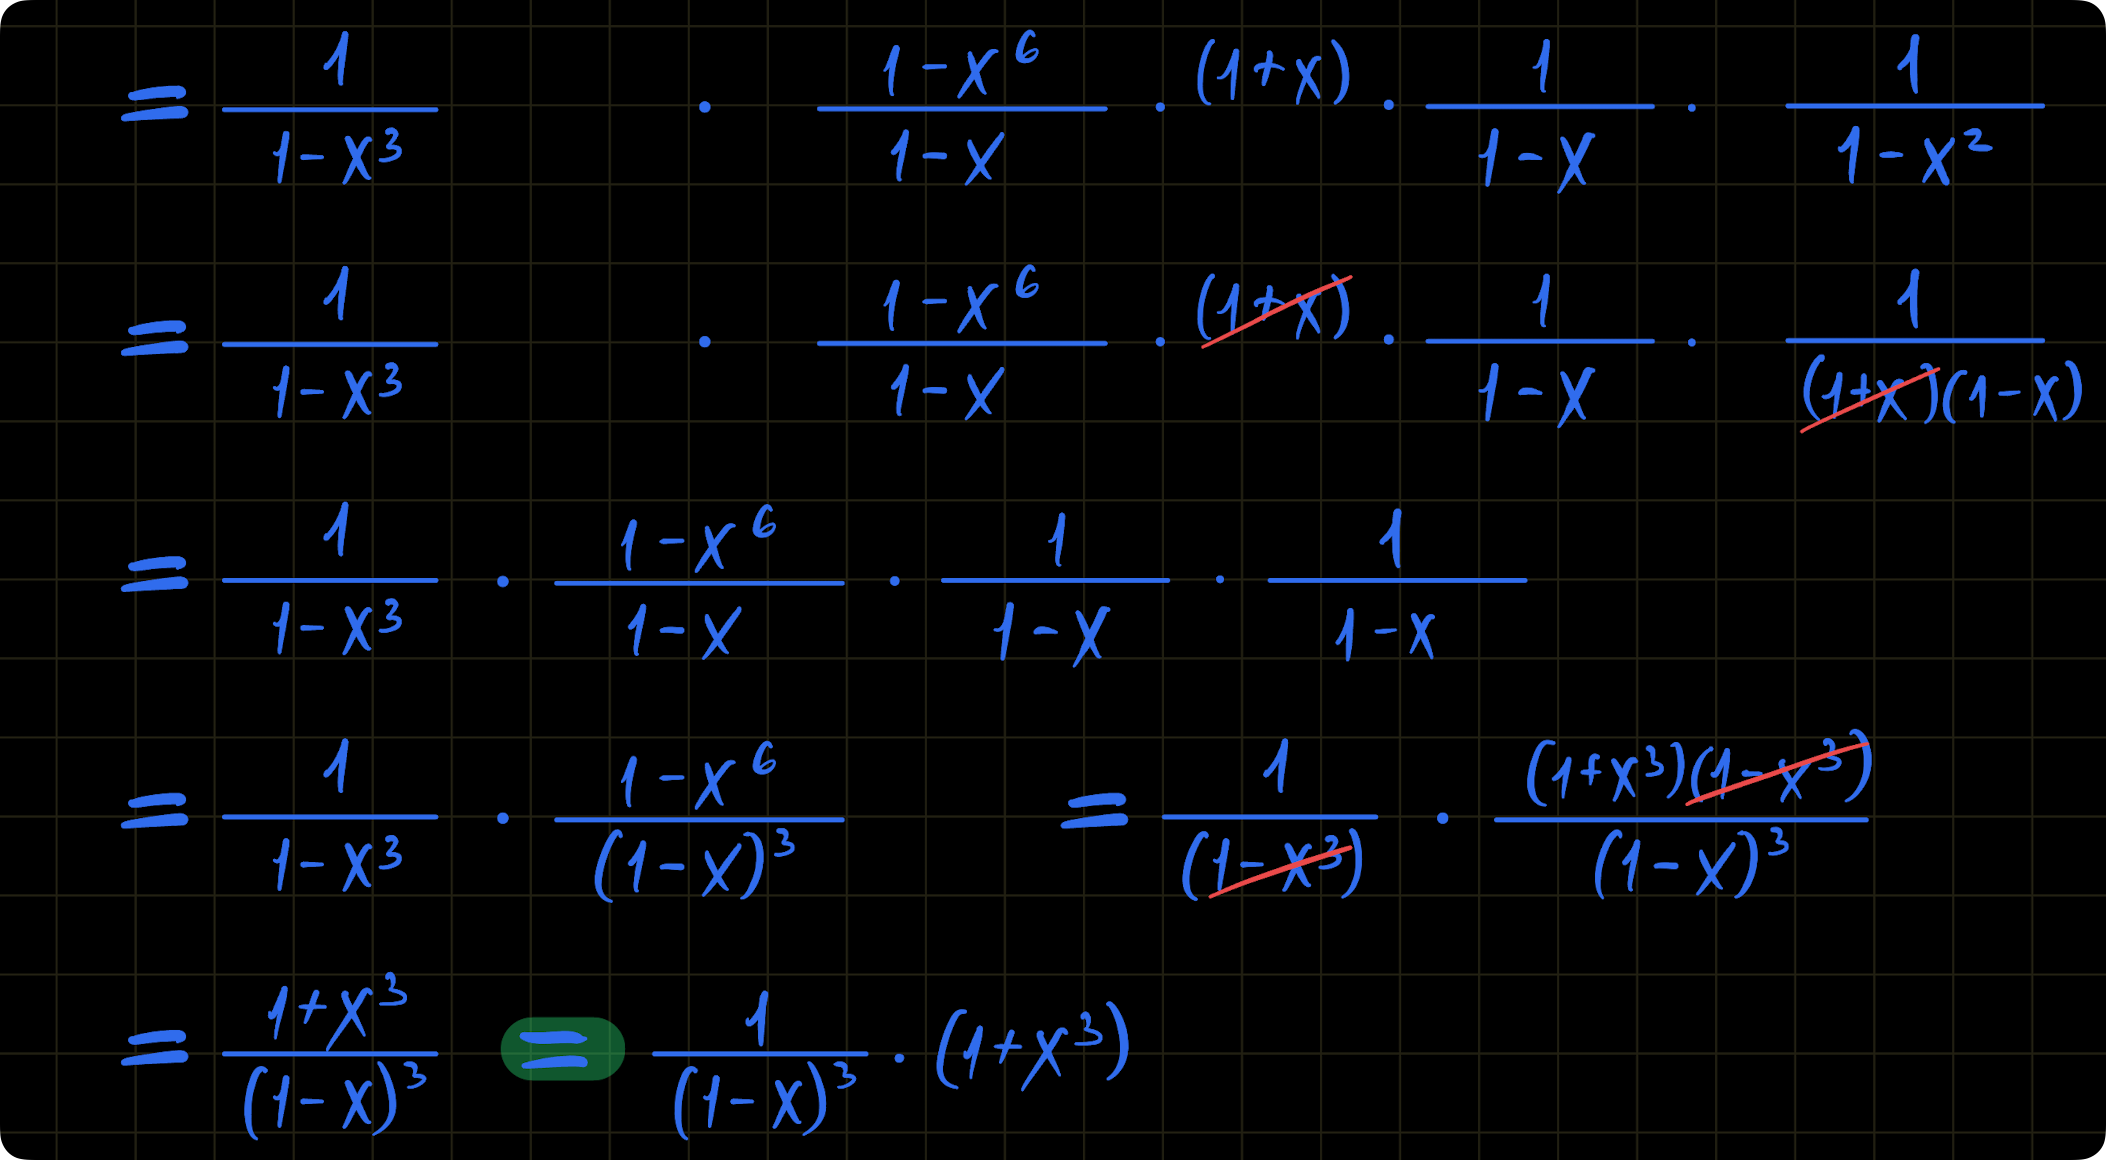 = 1/(1-x³) · (1-x⁶)/(1-x) · (1+x) · 1/(1-x) · 1/(1-x²)
= 1/(1-x³) · (1-x⁶)/(1-x) · (1+x) · 1/(1-x) · 1/((1+x)(1-x))
= 1/(1-x³) · (1-x⁶)/(1-x) · 1/(1-x) · 1/(1-x)
= 1/(1-x³) · (1-x⁶)/(1-x)³ = 1/(1-x³) · (1+x³)(1-x³)/(1-x)³
= (1+x³)/(1-x)³ = 1/(1-x)³ · (1+x³)